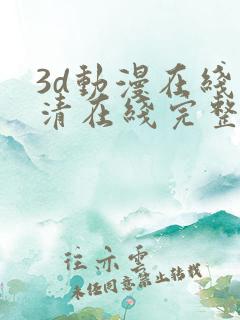 3d動漫在綫
清在綫完整
往亦雲
未经同意禁止转载